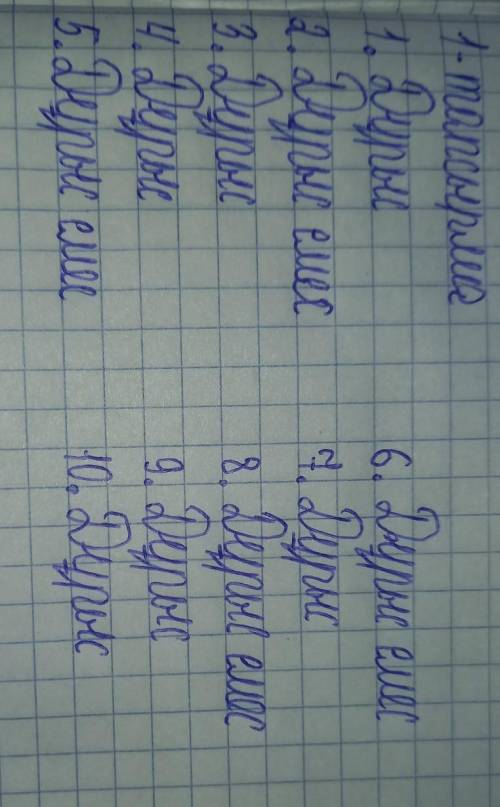 1-тапсырма
1. Дұрыс
2. Дұрыс емес
3. Дұрыс
4. Дұрыс
5. Дұрыс емес
6. Дұрыс емес
7. Дұрыс
8. Дұрыс емес
9. Дұрыс
10. Дұрыс